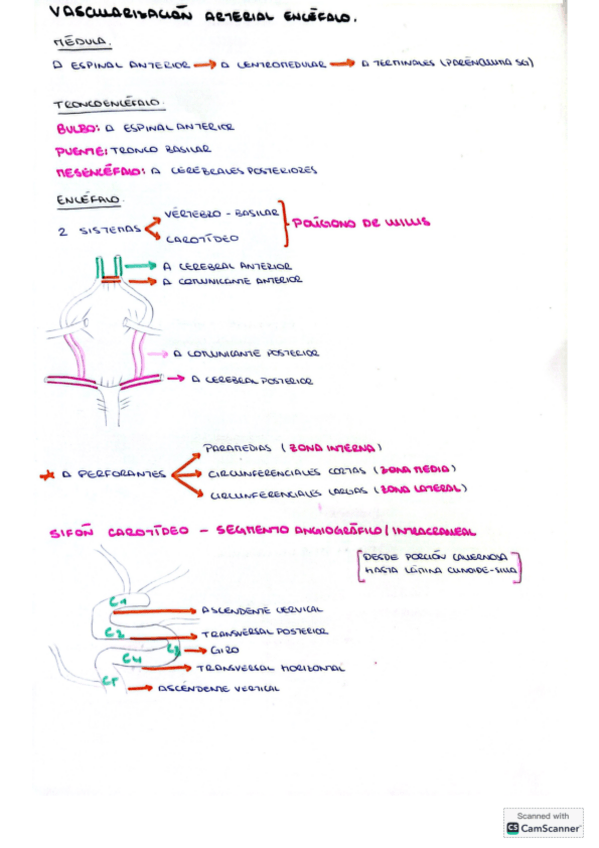 VASCULARIZACIÓN ARTERIAL ENCÉFALO.
MÉDULA.
A ESPINAL ANTERIOR → A CENTROMEDULAR → A TERMINALES (PARÉNQUIMA SG)
TRONCOENCÉFALO.
BULBO: A ESPINAL ANTERIOR
PUENTE: TRONCO BASILAR
MESENCÉFALO: A CEREBRALES POSTERIORES
ENCÉFALO.
2 SISTEMAS
VÉRTEBRO - BASILAR
CAROTÍDEO
POLÍGONO DE WILLIS
→ A CEREBRAL ANTERIOR
→ A COMUNICANTE ANTERIOR
→ A COMUNICANTE POSTERIOR
→ A CEREBRAL POSTERIOR
★ A PERFORANTES
PARAMEDIAS (ZONA INTERNA)
CIRCUNFERENCIALES CORTAS (ZONA MEDIA)
CIRCUNFERENCIALES LARGAS (ZONA LATERAL)
SIFÓN CAROTÍDEO - SEGMENTO ANGIOGRÁFICO / INTRACRANEAL
[DESDE PORCIÓN CAVERNOSA
HASTA LÁMINA CLINOIDE-SILLA]
C1
→ ASCENDENTE CERVICAL
C2
→ TRANSVERSAL POSTERIOR
C3
→ GIRO
C4
→ TRANSVERSAL HORIZONTAL
C5
→ ASCENDENTE VERTICAL
Scanned with
CS CamScanner